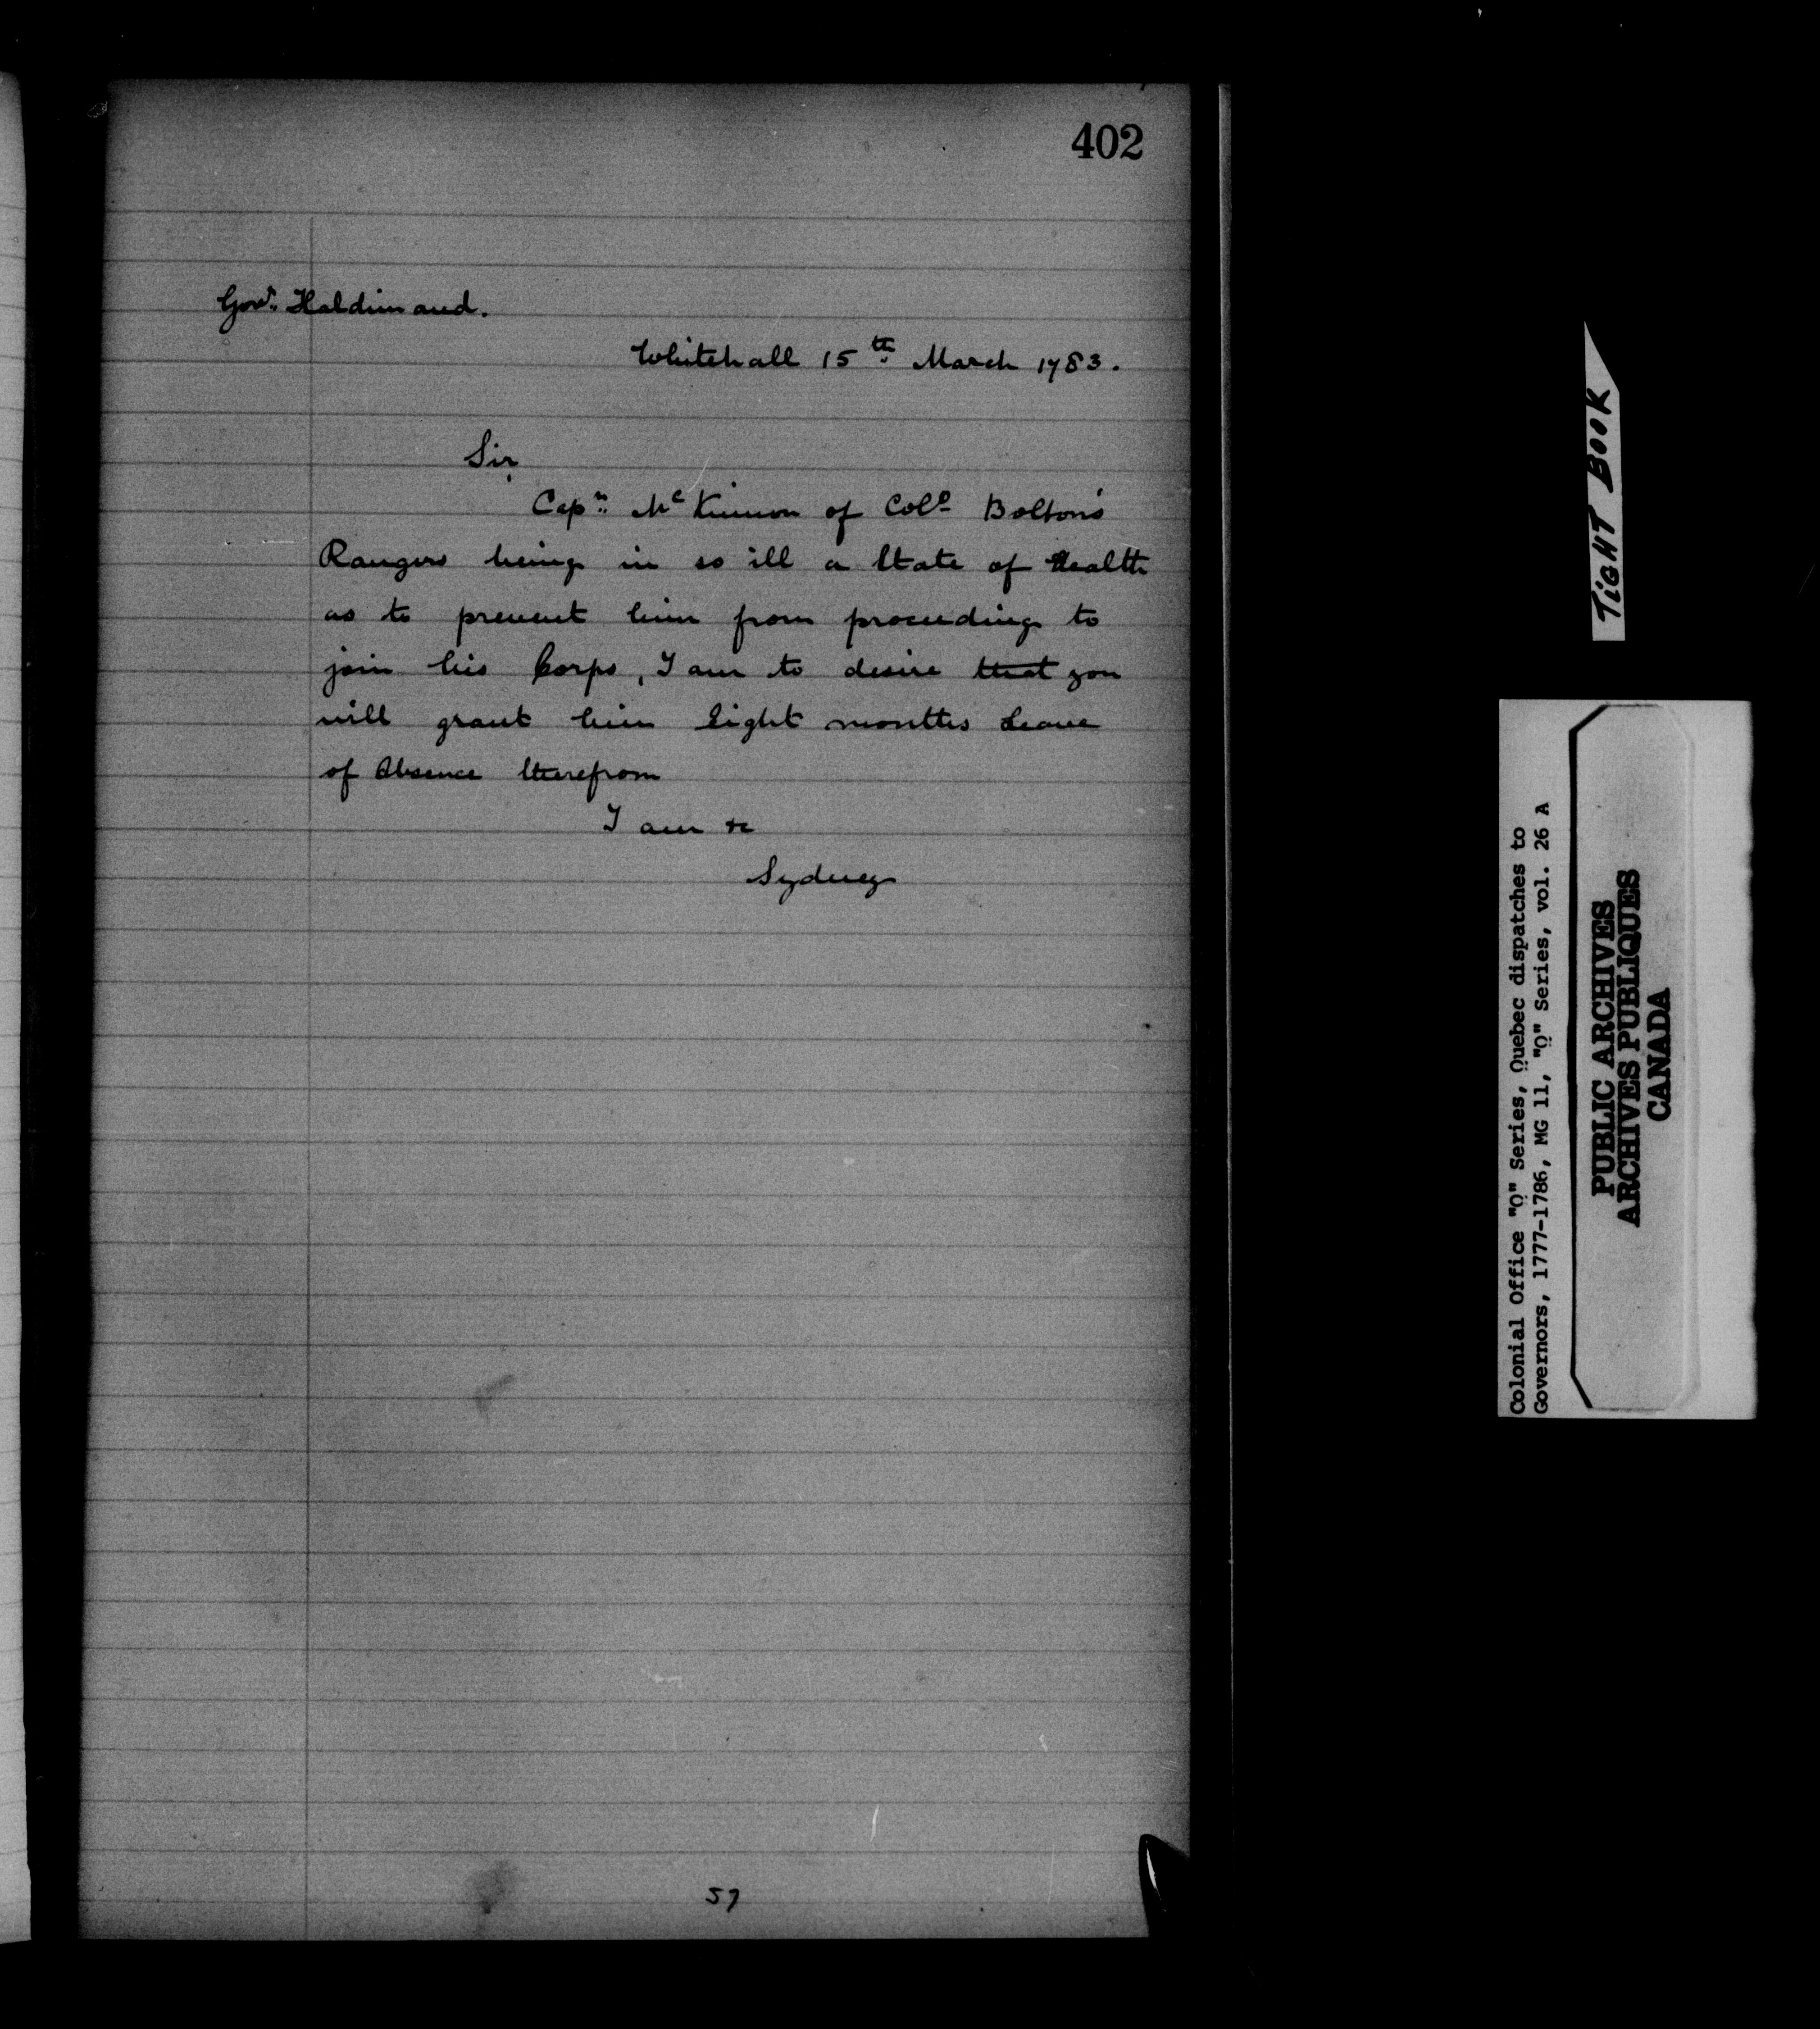 402
Govr. Haldimand.
Whitehall 15th March 1783.
Sir,
Capn. McKinnon of Colo Bolton's
Rangers being in so ill a State of Health
as to prevent him from proceeding to
join his Corps, I am to desire that you
will grant him Eight months Leave
of Absence therefrom
I am &c
Sydney
57
TIGHT BOOK
Colonial Office "Q" Series, Quebec dispatches to
Governors, 1777-1786, MG 11, "Q" Series, vol. 26 A
PUBLIC ARCHIVES
ARCHIVES PUBLIQUES
CANADA